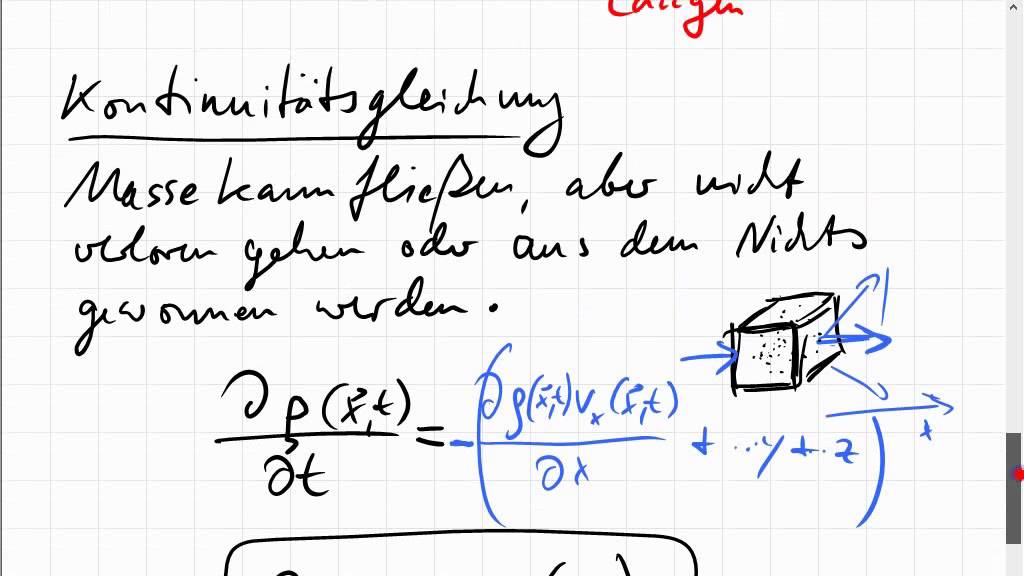 Kontinuitätsgleichung
Masse kann fließen, aber nicht
verloren gehen oder aus dem Nichts
gewonnen werden.
∂ρ(x⃗,t)/∂t = -(∂ρ(x⃗,t)v_x(x⃗,t)/∂x + ...y + ..z)
x